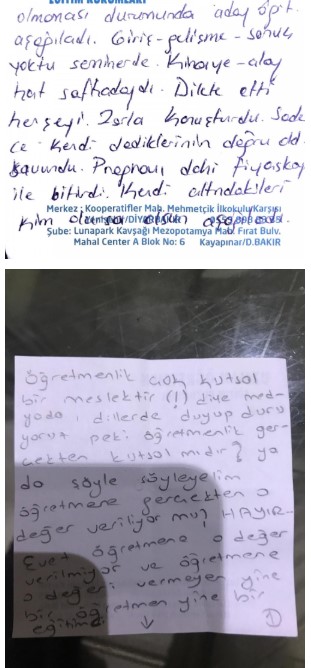 EĞİTİM KURUMLARI
olmaması durumunda aday öğrt.
aşağıladı. Giriş-gelişme-sonuç
yoktu seminerde. Kinaye-alay
hat safhadaydı. Dikte etti
herşeyi. Zorla konuşturdu. Sade
ce kendi dediklerinin doğru old.
savundu. Programı dahi fiyasko
ile bitirdi. Kendi altındakileri
Merkez : Kooperatifler Mah. Mehmetçik İlkokulu Karşısı
kim olursa olsun aşağıladı.
Şube: Lunapark Kavşağı Mezopotamya Mah. Fırat Bulv.
Mahal Center A Blok No: 6 Kayapınar/D.BAKIR
Öğretmenlik çok kutsal
bir meslektir (!) diye med-
yada, dillerde duyup duru
yoruz peki öğretmenlik ger-
çekten kutsal mıdır? ya
da şöyle söyleyelim
öğretmene gerçekten o
değer veriliyor mu? HAYIR-
Evet öğretmene o değer
verilmiyor ve öğretmene
o değeri vermeyen yine
bir öğretmen yine bir
eğitimci
1